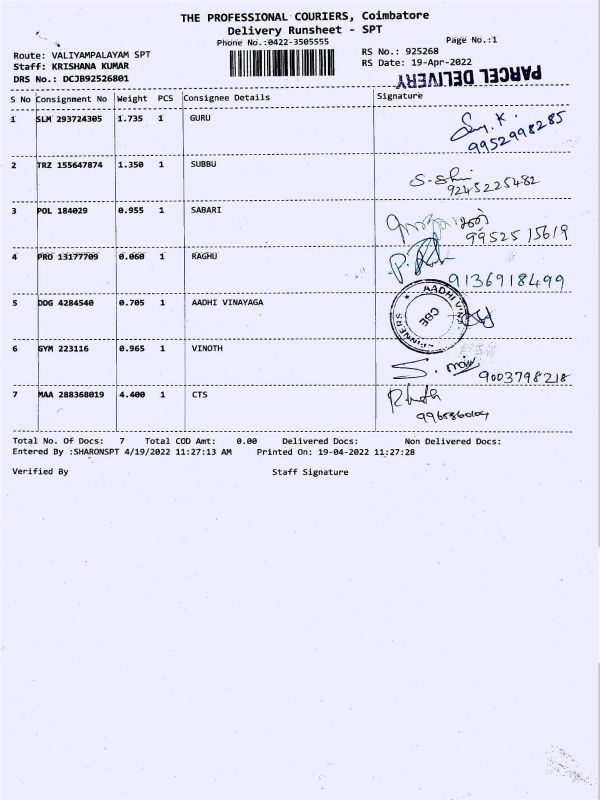 THE PROFESSIONAL COURIERS, Coimbatore
Delivery Runsheet - SPT
Phone No.:0422-3505555
Page No.:1
Route: VALIYAMPALAYAM SPT
RS No.: 925268
Staff: KRISHANA KUMAR
RS Date: 19-Apr-2022
DRS No.: DCJB92526801
PARCEL DELIVERY
S No Consignment No Weight PCS Consignee Details Signature
1 SLM 293724305 1.735 1 GURU
9952998285
2 TRZ 155647874 1.350 1 SUBBU
9245225482
3 POL 184029 0.955 1 SABARI
99525 15619
4 PRO 13177709 0.060 1 RAGHU
9136918499
5 DDG 4284540 0.705 1 AADHI VINAYAGA
AADHI
CBE
6 GYM 223116 0.965 1 VINOTH
9003798218
7 MAA 288368019 4.400 1 CTS
Total No. Of Docs: 7 Total COD Amt: 0.00 Delivered Docs: Non Delivered Docs:
Entered By :SHARONSPT 4/19/2022 11:27:13 AM Printed On: 19-04-2022 11:27:28
Verified By Staff Signature